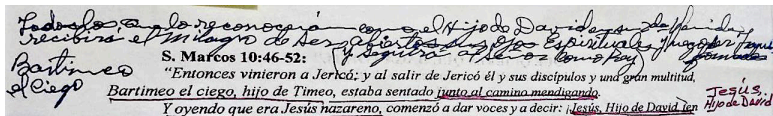 Todos los que lo reconocerán como el Hijo de David en su de Navida,
recibirá el Milagro de Ser abiertos sus Ojos Espirituales y luego por
y seguirá al Señor como hoy
Bartimeo
el Ciego
S. Marcos 10:46-52:
"Entonces vinieron a Jericó; y al salir de Jericó él y sus discípulos y una gran multitud,
Bartimeo el ciego, hijo de Timeo, estaba sentado junto al camino mendigando.
Y oyendo que era Jesús nazareno, comenzó a dar voces y a decir: ¡Jesús, Hijo de David, ten
Jesús,
Hijo de David